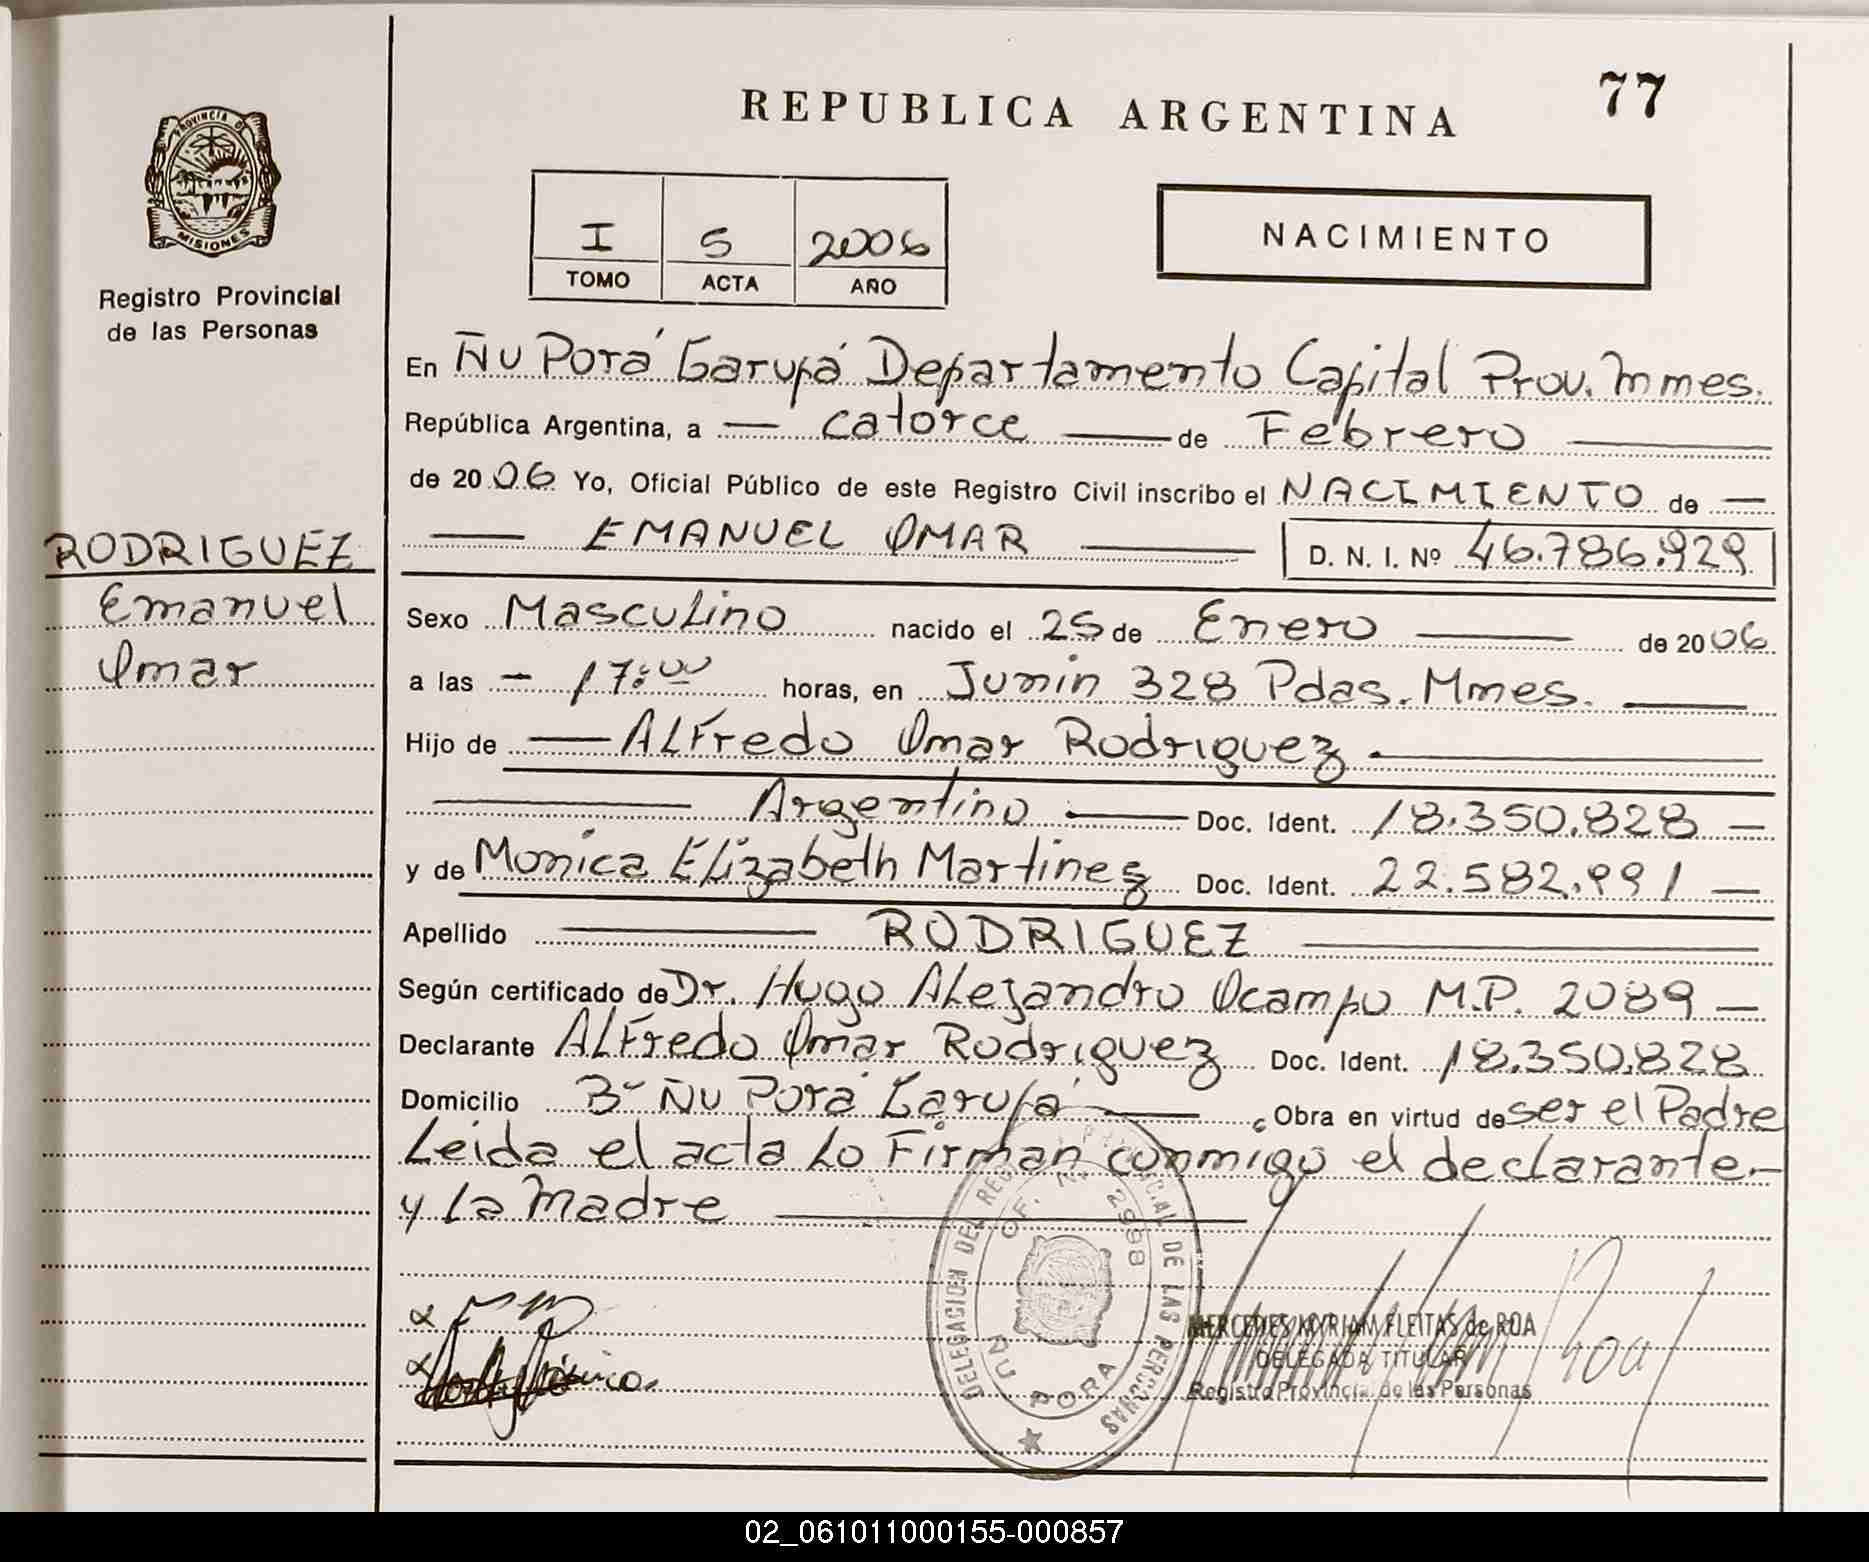 77
REPUBLICA ARGENTINA
PROVINCIA DE
MISIONES
Registro Provincial
de las Personas
I 5 2006
TOMO ACTA AÑO
NACIMIENTO
En Ñu Porá Garupá Departamento Capital Prov. Mnes.
República Argentina, a — catorce — de Febrero —
de 2006 Yo, Oficial Público de este Registro Civil inscribo el NACIMIENTO de —
— EMANUEL OMAR — D. N. I. Nº 46.786.929
RODRIGUEZ
Emanuel
Omar
Sexo Masculino nacido el 25 de Enero — de 2006
a las — 17:00 horas, en Junin 328 Pdas. Mnes. —
Hijo de — ALFredo Omar Rodriguez —
— Argentino — Doc. Ident. 18.350.828 —
y de Monica Elizabeth Martinez Doc. Ident. 22.582.991 —
Apellido — RODRIGUEZ —
Según certificado de Dr. Hugo Alejandro Ocampo M.P. 2089 —
Declarante ALFredo Omar Rodriguez Doc. Ident. 18.350.828
Domicilio Bº Ñu Porá Garupá — Obra en virtud de ser el Padre
Leida el acta Lo Firman conmigo el declarante.-
y La Madre —
DELEGACION DEL REG. PROVINCIAL DE LAS PERSONAS
OF. Nº 2998
ÑU PORA
MERCEDES MYRIAM FLEITAS de ROA
DELEGADA TITULAR
Registro Provincial de las Personas
02_061011000155-000857